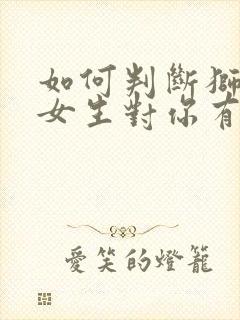 如何判斷獅
女生對你有
愛笑的燈籠